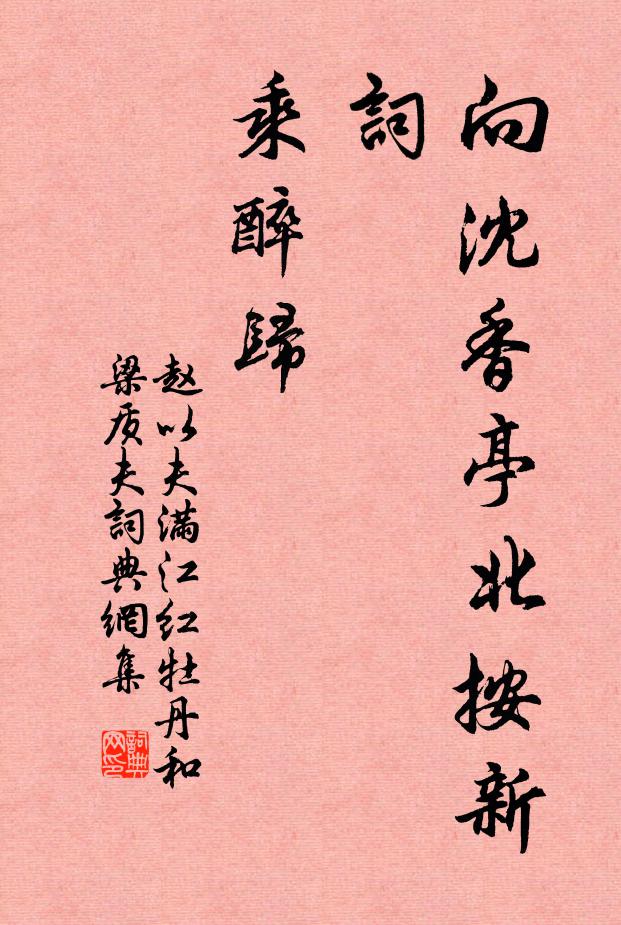 向沈香亭北按新
詞
乘醉歸
赵以夫满江红牡丹和
梁质夫詞典網集
詞典
网印